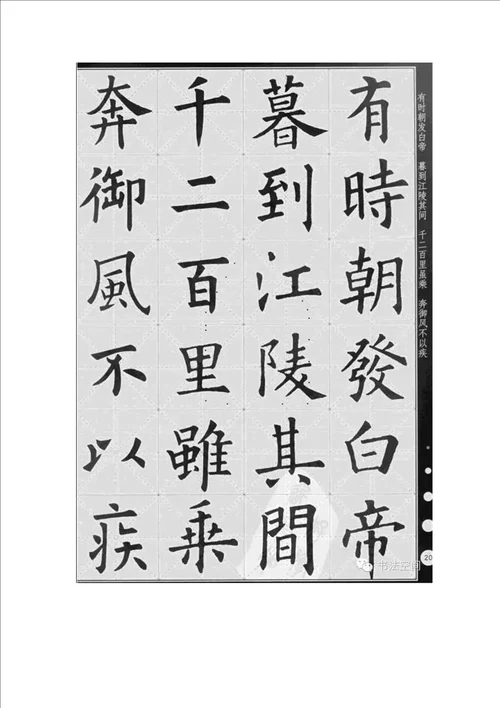 有時朝發白帝
暮到江陵其間
千二百里雖乘
奔御風不以疾
有时朝发白帝 暮到江陵其间 千二百里虽乘 奔御风不以疾
20
书法空间